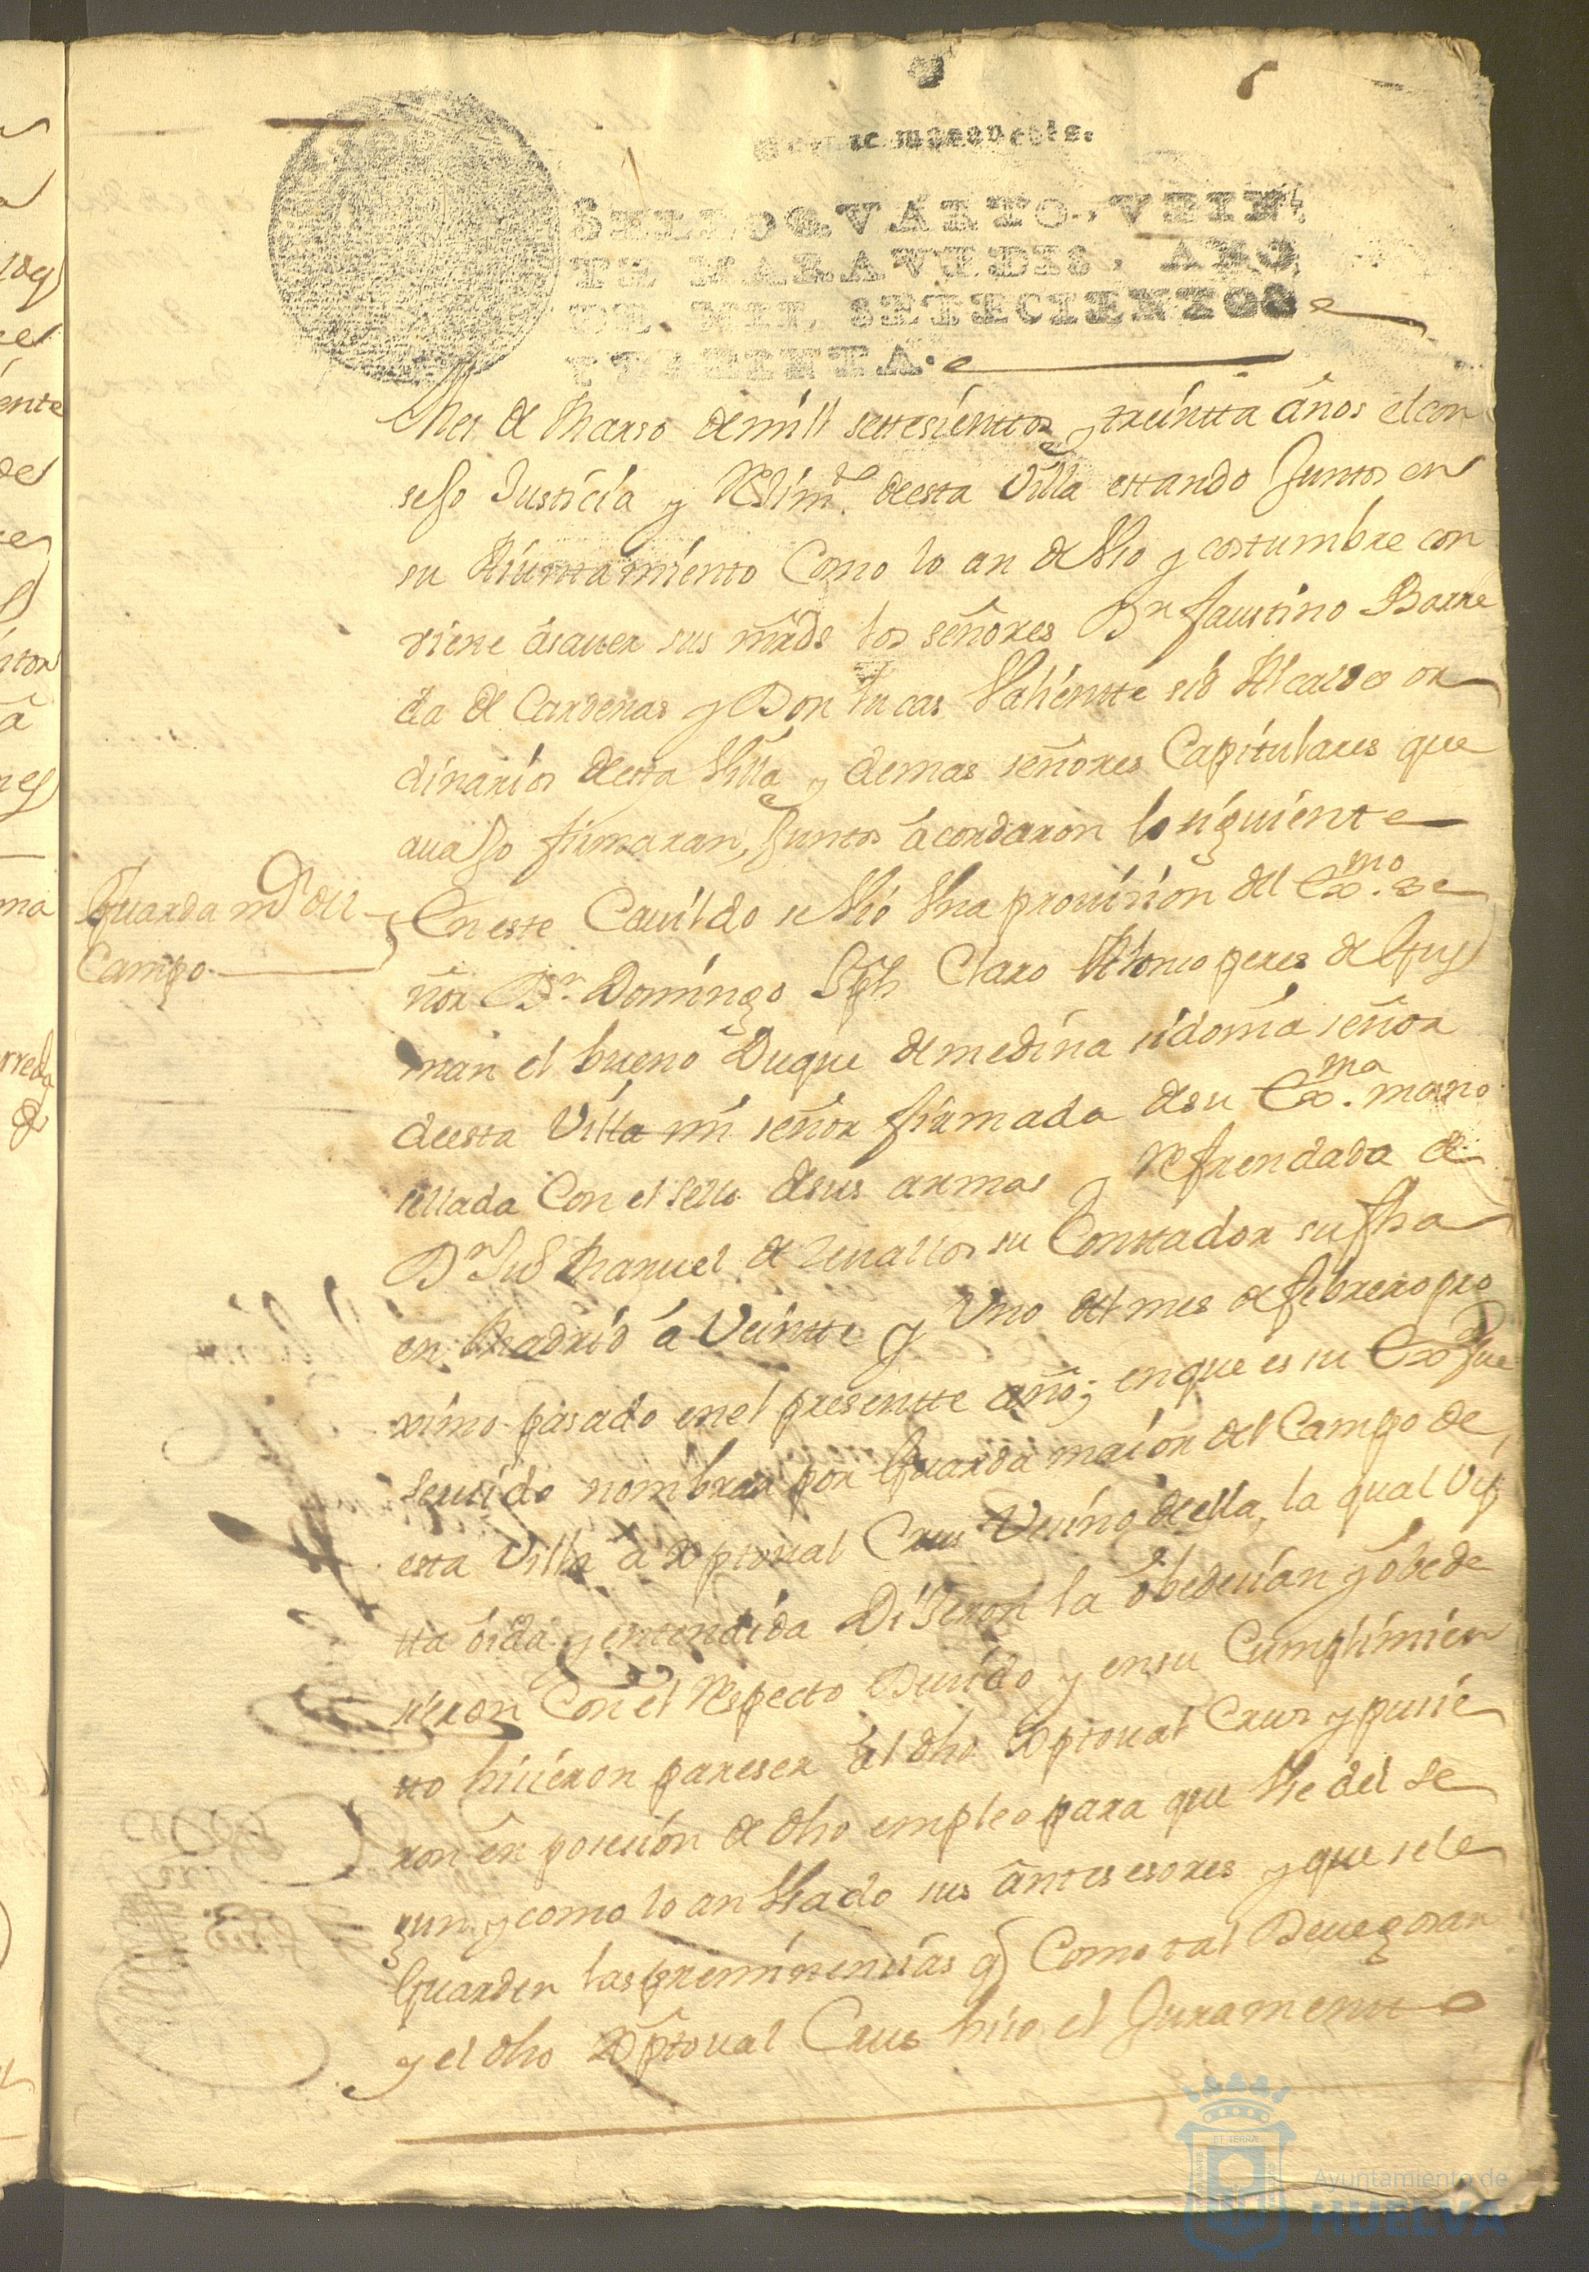 6
Veinte maravedis.
SELLO QVARTO, VEIN-
TE MARAVEDIS, AÑO
DE MIL SETECIENTOS
TREINTA.
Mes de Marso de mill settesienttos y treintta años el con
sejo Justicia y Rexim.to de esta Villa estando Juntos en
su Aiunttamiento Como lo an de Uso y costumbre con
viene asauer sus mrds los señores Dn faustino Barre
da de Cardenas y Don Lucas Valientte Alcaldes or
dinarios de etta Villa y demas señores Capitulares que
auajo firmaran, Juntos acordaron lo siguiente
Guarda mr del
Campo
En este Cauildo se Vio Vna prouision del Exmo. se
ñor Dn. Domingo Jph Claro Alonso peres de Gus
man el bueno Duque de medina sidonia señor
de esta Villa mi señor firmada de su Exma. mano
sellada Con el sello de sus armas y Refrendada de
Dn Manuel de Seuallos su Conttador su fha
en Madrid a Veintte y Uno del mes de febrero pro
ximo pasado en el presentte año; en que es su Exa fue
seruido nombrar por Guarda maior del Campo de
esta Villa a Xptoual Crus Vesino de ella, la qual Vis
tta oida y entendida Dijeron la obedesian y obede
sieron Con el Respecto Deuido y en su Cumplimien
tto hisieron pareser al dho Xptoual Crus y pusie
ron en posesion de dho empleo para que Vse del se
gun y como lo an Vsado sus antesesores y que se le
Guarden las preminensias q Como tal Deue gosar
y el dho Xptoual Crus hiso el Juramentto
Ayuntamiento de
HUELVA